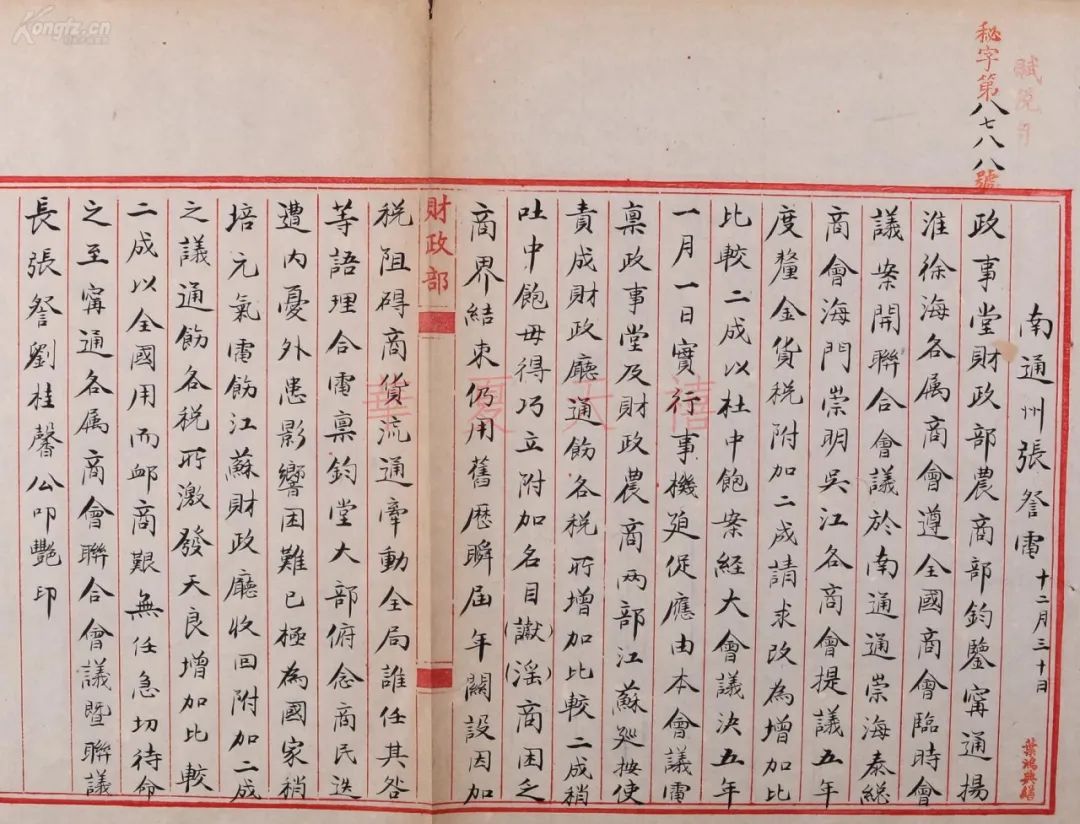 Kongfz.cn
賦稅司
秘字第八七八八號
南通州張詧電 十二月三十日
政事堂財政部農商部鈞鑒甯通揚
淮徐海各属商會遵全國商會臨時會
議案開聯合會議於南通通崇海泰総
商會海門崇明吳江各商會提議五年
度釐金貨税附加二成請求改為增加比
比較二成以杜中飽案経大會議決五年
一月一日實行事機廹促應由本會議電
禀政事堂及財政農商兩部江蘇廵按使
責成財政廳通飭各税所增加比較二成稍
吐中飽毋得巧立附加名目(讞)(滛)商困乏
商界結束仍用舊歷瞬届年關設因加
財政部
税阻碍商貨流通牽動全局誰任其咎
等語理合電禀鈞堂大部俯念商民迭
遭内憂外患影響困難已極為國家稍
培元氣電飭江蘇財政廳收回附加二成
之議通飭各税所激發天良增加比較
二成以全國用而邮商艱無任急切待命
之至甯通各属商會聯合會議暨聯議
長張詧劉桂馨公叩艷印
華夏天禧